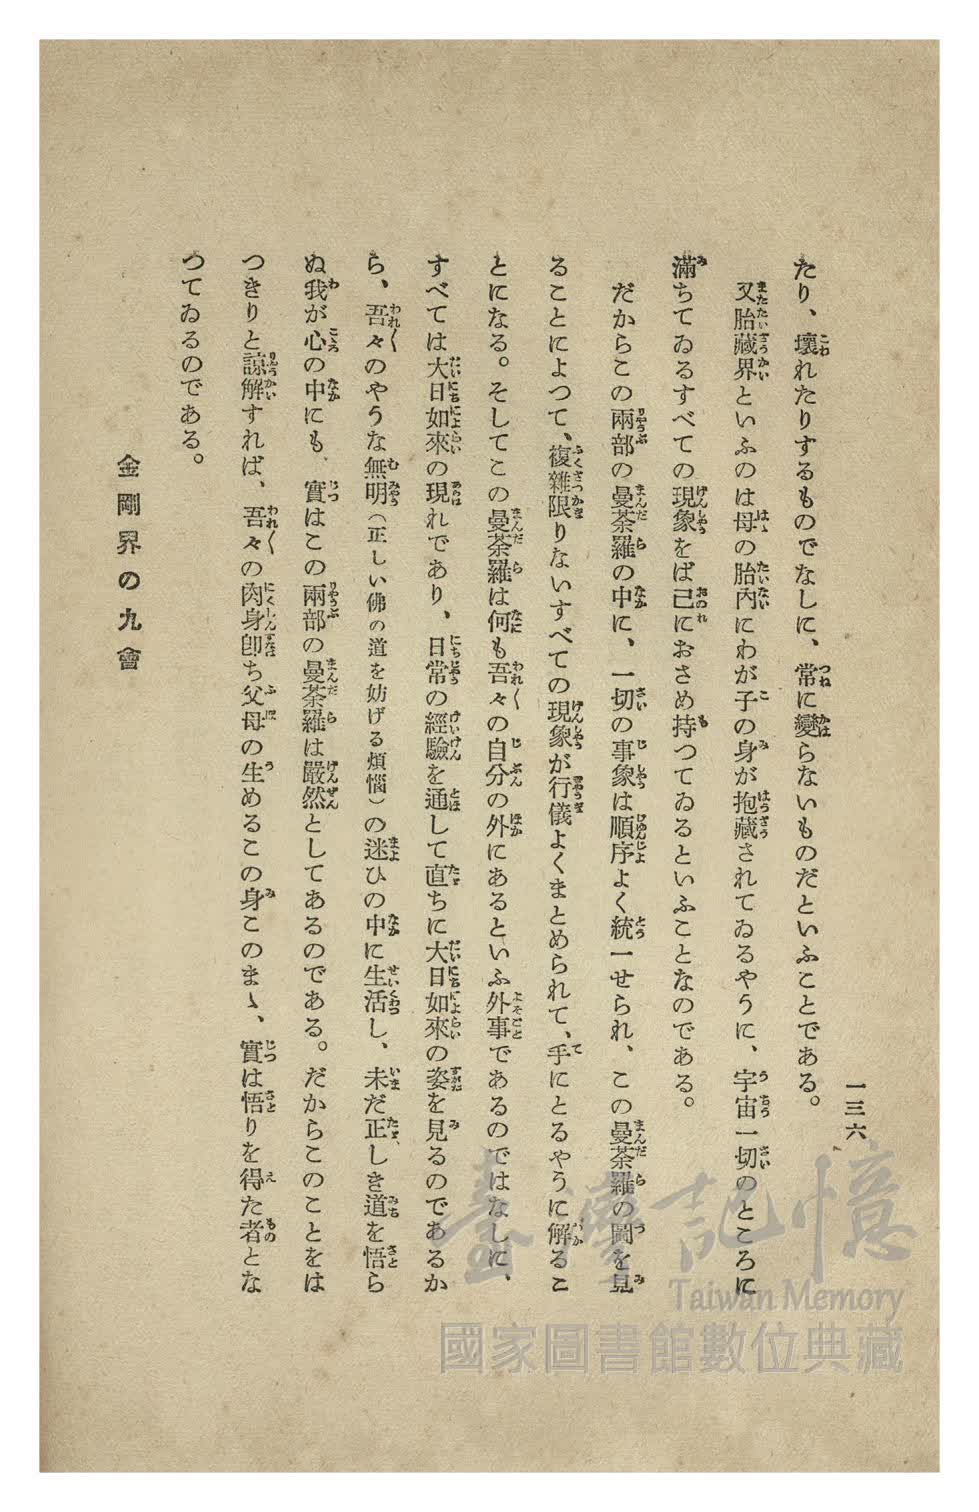 一三六
たり、壞れたりするものでなしに、常に變らないものだといふことである。
又胎藏界といふのは母の胎內にわが子の身が抱藏されてゐるやうに、宇宙一切のところに
滿ちてゐるすべての現象をば己におさめ持つてゐるといふことなのである。
だからこの兩部の曼荼羅の中に、一切の事象は順序よく統一せられ、この曼荼羅の圖を見
ることによつて、複雜限りないすべての現象が行儀よくまとめられて、手にとるやうに解るこ
とになる。そしてこの曼荼羅は何も吾々の自分の外にあるといふ外事であるのではなしに、
すべては大日如來の現れであり、日常の經驗を通して直ちに大日如來の姿を見るのであるか
ら、吾々のやうな無明（正しい佛の道を妨げる煩惱）の迷ひの中に生活し、未だ正しき道を悟ら
ぬ我が心の中にも、實はこの兩部の曼荼羅は嚴然としてあるのである。だからこのことをは
つきりと諒解すれば、吾々の肉身卽ち父母の生めるこの身このまゝ、實は悟りを得た者とな
つてゐるのである。
金剛界の九會
臺灣記憶
Taiwan Memory
國家圖書館數位典藏